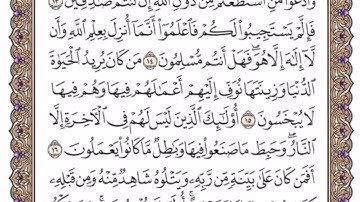 وَٱدْعُوا۟ مَنِ ٱسْتَطَعْتُم مِّن دُونِ ٱللَّهِ إِن كُنتُمْ صَٰدِقِينَ ١٣
فَإِلَّمْ يَسْتَجِيبُوا۟ لَكُمْ فَٱعْلَمُوٓا۟ أَنَّمَآ أُنزِلَ بِعِلْمِ ٱللَّهِ وَأَن
لَّآ إِلَٰهَ إِلَّا هُوَ ۖ فَهَلْ أَنتُم مُّسْلِمُونَ ١٤ مَن كَانَ يُرِيدُ ٱلْحَيَوٰةَ
ٱلدُّنْيَا وَزِينَتَهَا نُوَفِّ إِلَيْهِمْ أَعْمَٰلَهُمْ فِيهَا وَهُمْ فِيهَا
لَا يُبْخَسُونَ ١٥ أُو۟لَٰٓئِكَ ٱلَّذِينَ لَيْسَ لَهُمْ فِى ٱلْءَاخِرَةِ إِلَّا
ٱلنَّارُ ۖ وَحَبِطَ مَا صَنَعُوا۟ فِيهَا وَبَٰطِلٌ مَّا كَانُوا۟ يَعْمَلُونَ ١٦
أَفَمَن كَانَ عَلَىٰ بَيِّنَةٍ مِّن رَّبِّهِۦ وَيَتْلُوهُ شَاهِدٌ مِّنْهُ وَمِن قَبْلِهِۦ